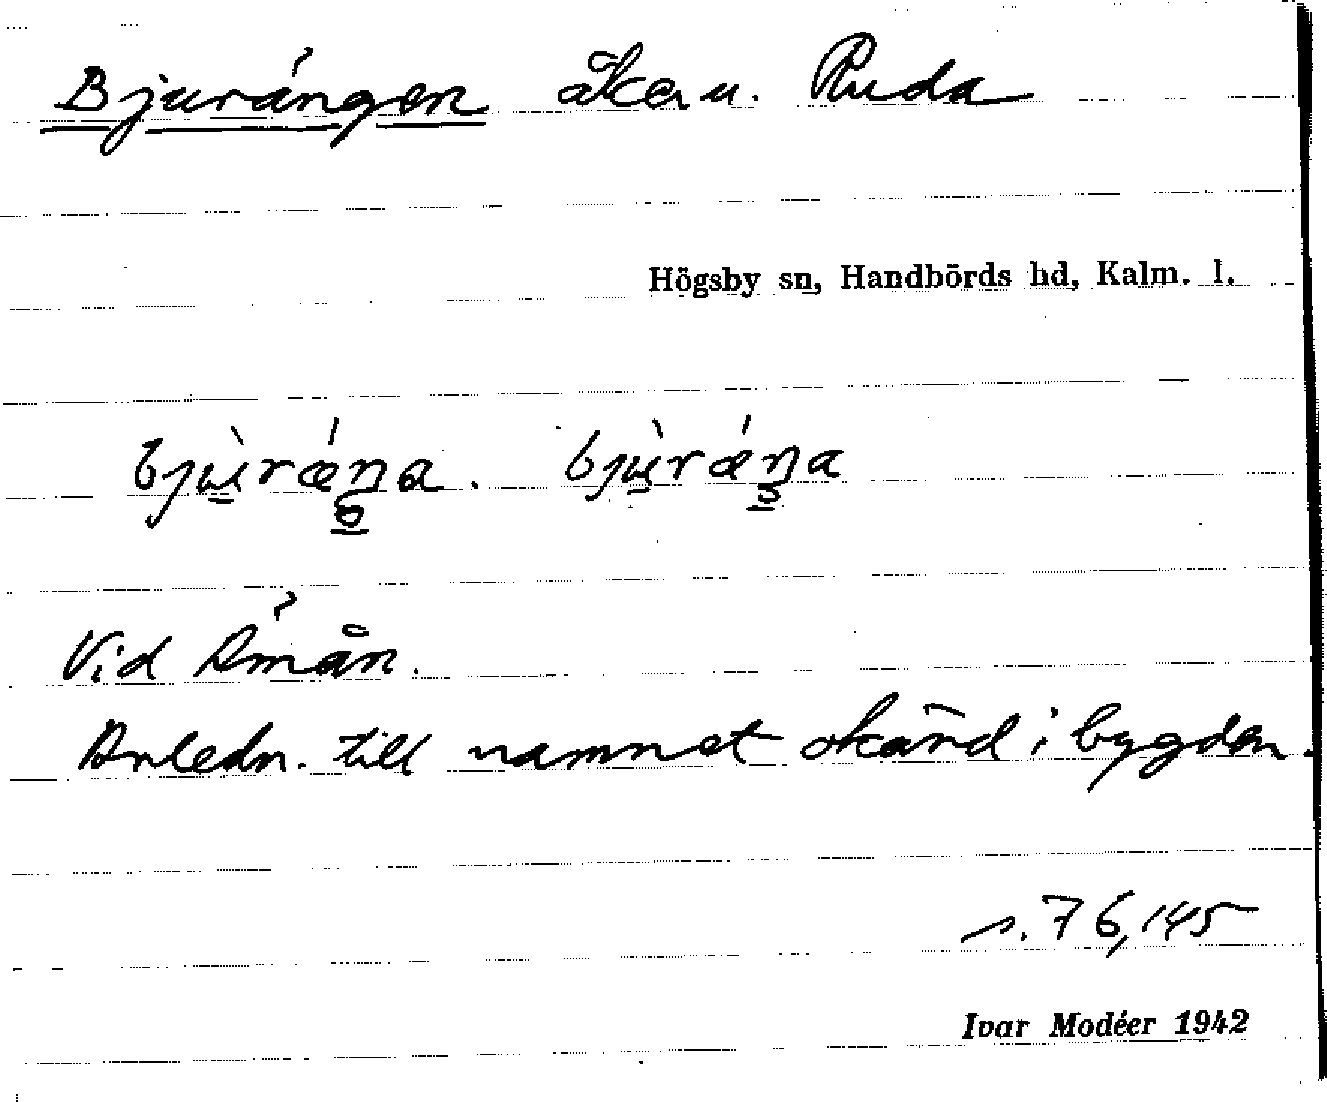 Bjurängen åker u. Ruda
Högsby sn, Handbörds hd, Kalm. l.
bju̠̇̀ræ̀ŋa. bju̠̇̀ræ̀ŋa
Vid Ämån.
Anledn. till namnet okänd i bygden.
s. 76, 145
Ivar Modéer 1942